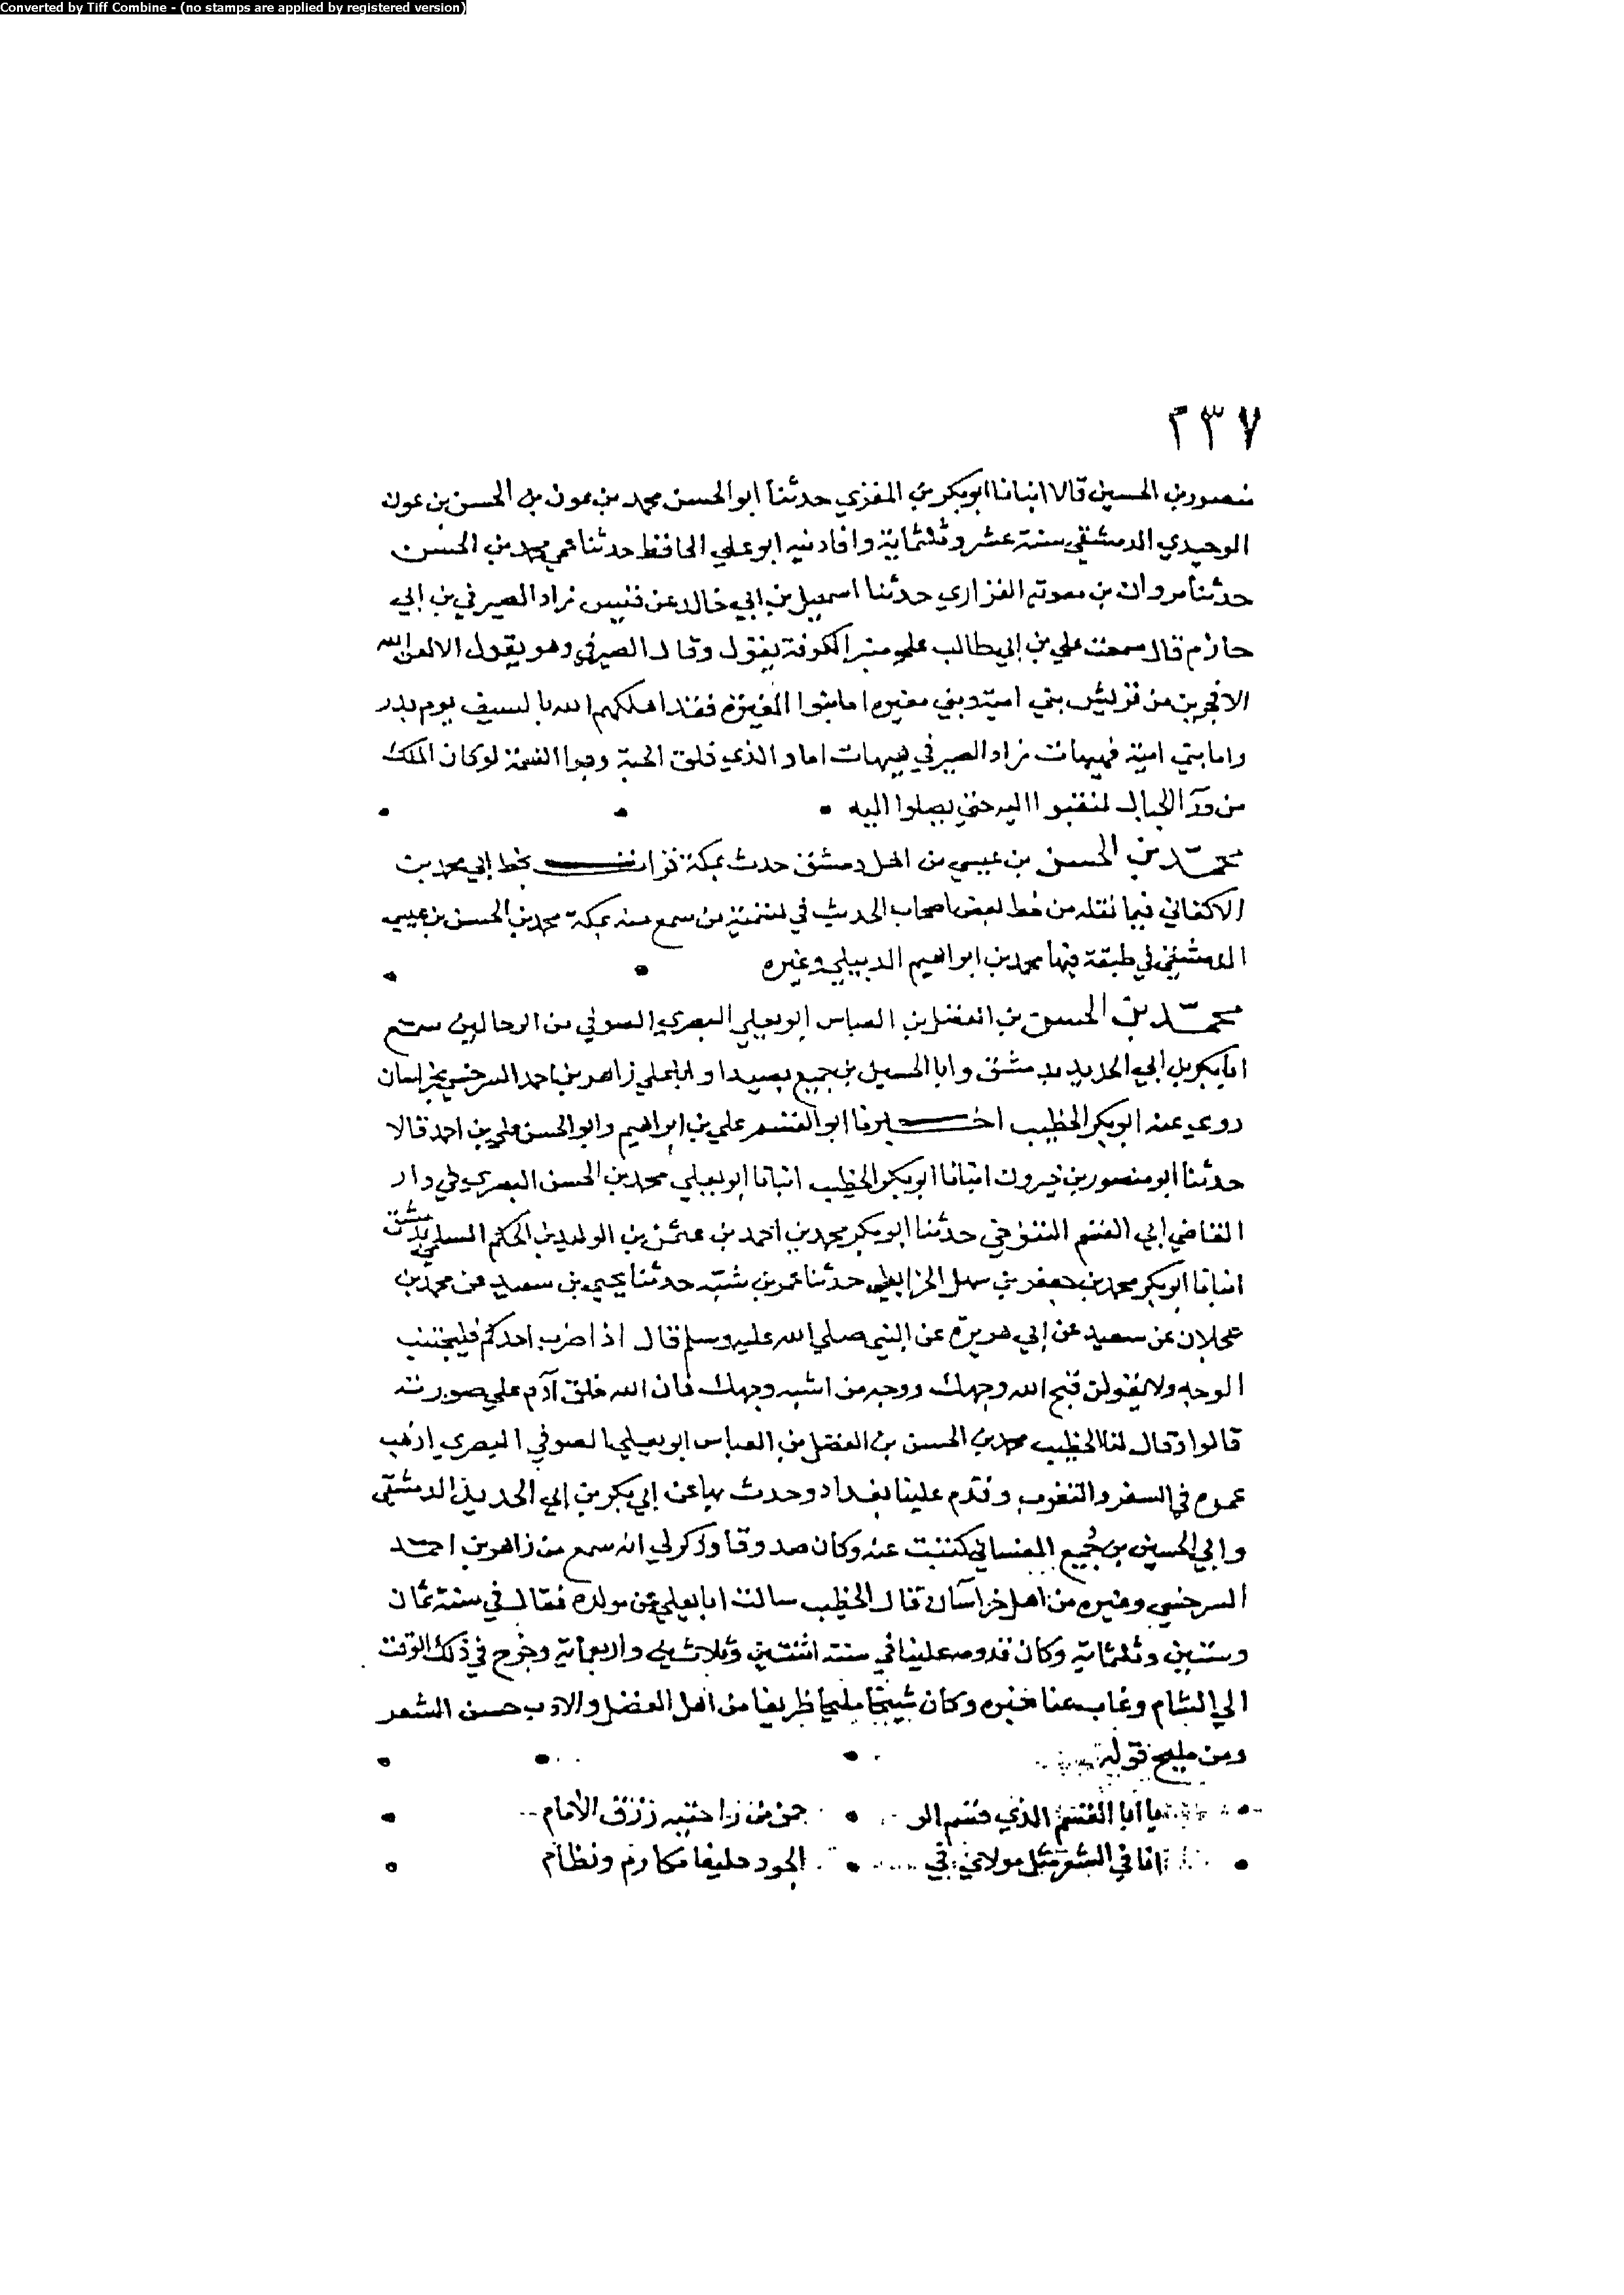 Converted by Tiff Combine - (no stamps are applied by registered version)
٢٣٧
منصور بن الحسين قالا انبانا ابو بكر بن المقري حدثنا ابو الحسن محمد بن عون بن الحسن بن عون
الوحيدي الدمشقي سنة عشر وثلثماية وافادنيه ابو علي الحافظ حدثنا عمي محمد بن الحسن
حدثنا مروان بن معوية الفزاري حدثنا اسمعيل بن ابي خالد عن قيس زاد الصيرفي بن ابي
حازم قال سمعت علي بن ابي طالب على منبر الكوفة يقول وقال الصيرفي وهو يقول الا لعن الله
الافجرين من قريش بني امية وبني مغيره اما بنوا المغيرة فقد اهلكهم الله بالسيف يوم بدر
واما بني امية فهيهات زاد الصيرفي هيهات اما والذي فلق الحبة وبرا النسمة لو كان الملك
من ورآ الجبال لنقبوا اليه حتي يصلوا اليه
محمد بن الحسن بن عيسي من اهل دمشق حدث بمكة قرات بخط ابي محمد بن
الاكفاني فيما نقله من خط بعض اصحاب الحديث في تسمية من سمع منه بمكة محمد بن الحسن بن عيسي
الدمشقي في طبقة فيها محمد بن ابراهيم الديبلي وغيره
محمد بن الحسن بن الفضل بن العباس ابو يعلي البصري الصوفي من الرحالين سمع
ابا بكر بن ابي الحديد بدمشق وابا الحسين بن جميع بصيدا وابا علي زاهر بن احمد السرخسي بخراسان
روي عنه ابو بكر الخطيب اخبرنا ابو القسم علي بن ابراهيم وابو الحسن علي بن احمد قالا
حدثنا ابو منصور بن خيرون انبانا ابو بكر الخطيب انبانا ابو يعلي محمد بن الحسن البصري في دار
القاضي ابي القسم التنوخي حدثنا ابو بكر محمد بن احمد بن عثمن بن الوليد بن الحكم السلمي بدمشق
انبانا ابو بكر محمد بن جعفر بن سهل الخرايطي حدثنا عمر بن شبه حدثنا يحيي بن سعيد عن محمد بن
عجلان عن سعيد عن ابي هريره عن النبي صلي الله عليه وسلم قال اذا ضرب احدكم فليجتنب
الوجه ولا يقولن قبح الله وجهك ووجه من اشبه وجهك فان الله خلق آدم علي صورته
قالوا وقال لنا الخطيب محمد بن الحسن بن الفضل بن العباس ابو يعلي الصوفي البصري اذهب
عمره في السفر والتغرب وقدم علينا بغداد وحدث بها عن ابي بكر بن ابي الحديد الدمشقي
وابي الحسين بن جُميع الغساني كتبت عنه وكان صدوقا وذكر لي انه سمع من زاهر بن احمد
السرخسي وغيره من اهل خراسان قال الخطيب سالت ابا يعلي عن مولده فقال في سنة ثمان
وستين وثلثماية وكان قدومه علينا في سنة اثنتين وثلاثين واربعماية وخرج في ذلك الوقت
الي الشام وغاب عنا خبره وكان شيخًا مليحا ظريفا من اهل الفضل والادب حسن الشعر
ومن مليح قوله
يا ابا القسم الذي قسم الر حمن من راحتيه رزق الانام
انا في الشعر مثل مولاي في الجود حليفا مكارم ونظام